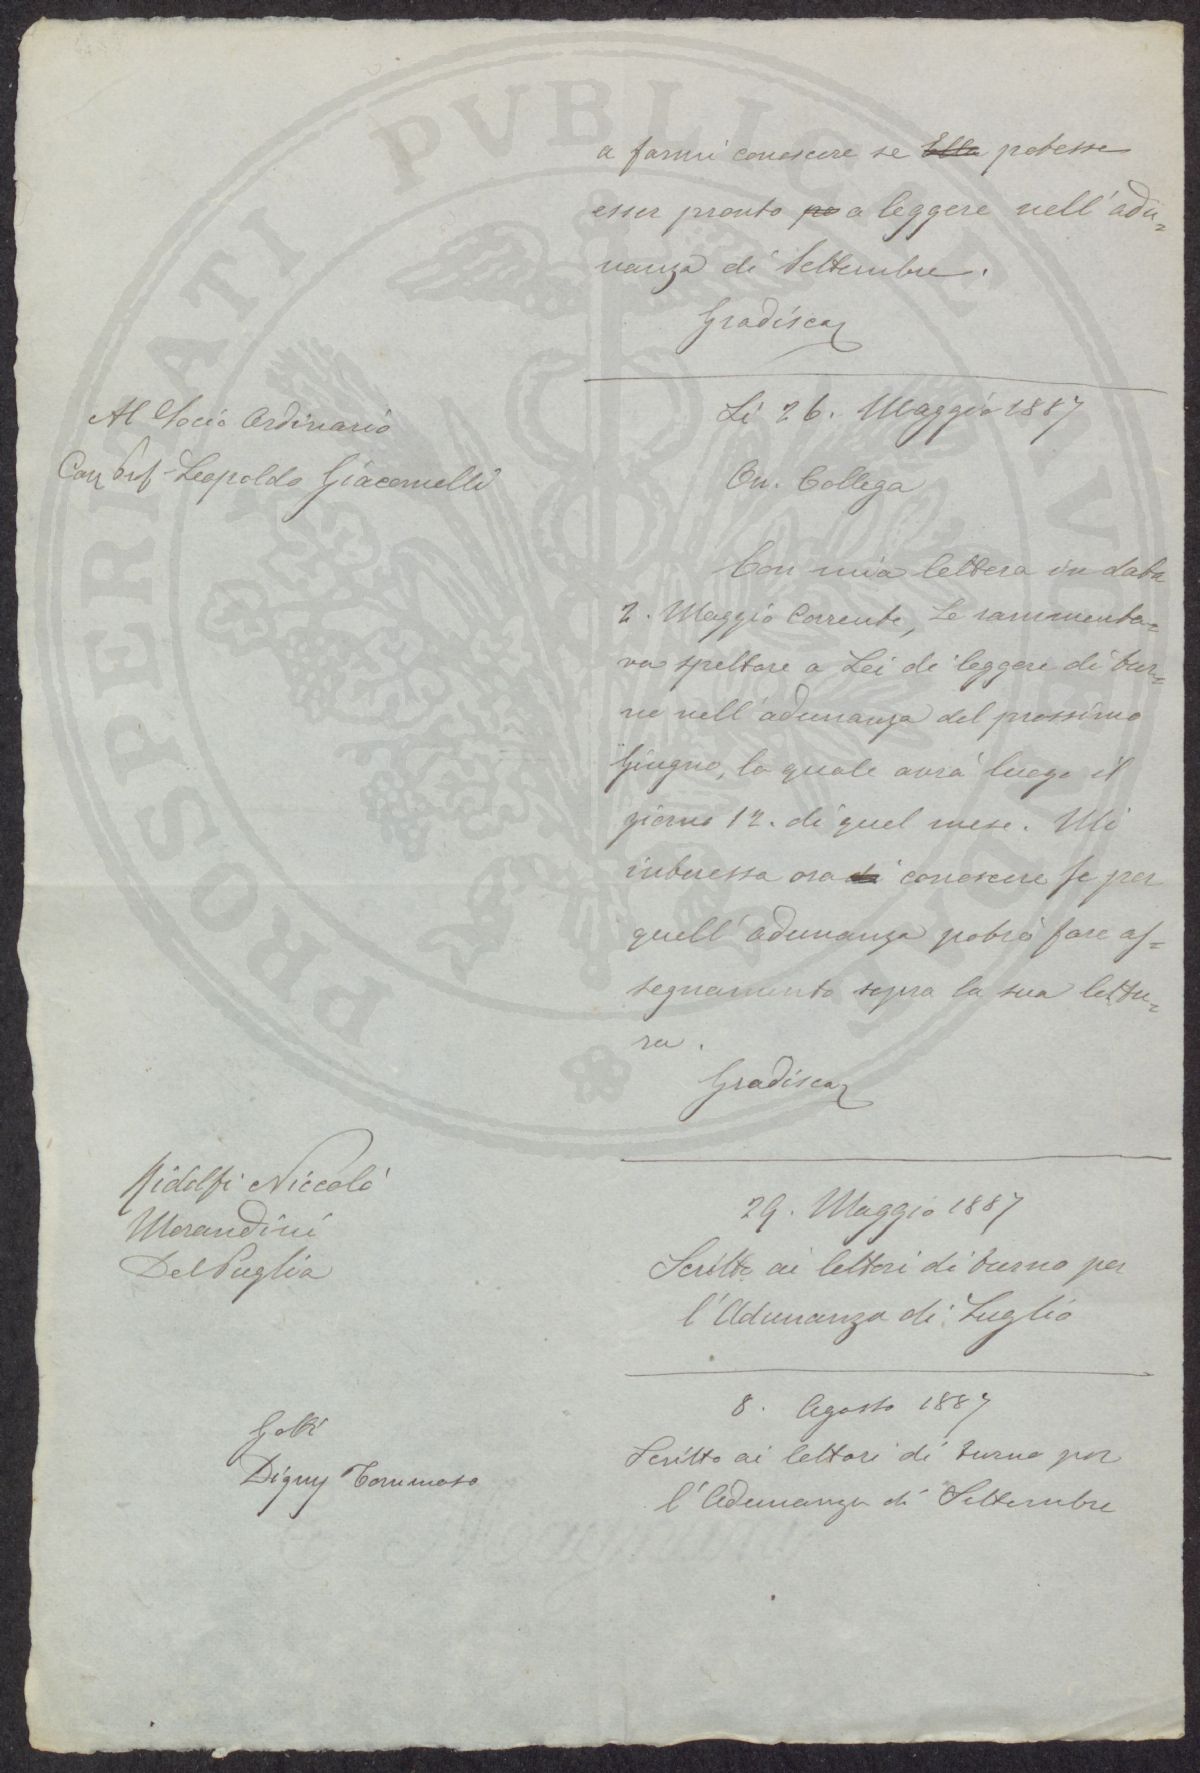 a farmi conoscere se Ella potesse
esser pronto po a leggere nell'adu=
nanza di Settembre.
Gradisca
Al Socio Ordinario
Cav Prof Leopoldo Giacomelli
Li 26. Maggio 1887
On. Collega
Con mia lettera in data
2. Maggio Corrente, Le rammenta=
va spettare a Lei di leggere di tur=
no nell'adunanza del prossimo
Giugno, la quale avrà luogo il
giorno 12. di quel mese. Mi
interessa ora di conoscere se per
quell'adunanza potrò fare as=
segnamento sopra la sua lettu=
ra.
Gradisca
Ridolfi Niccolò
Morandini
Del Puglia
29. Maggio 1887
Scritto ai lettori di turno per
l'Adunanza di Luglio
8. Agosto 1887
Digny Tommaso
Scritto ai lettori di turno per
l'Adunanza di Settembre
PROSPERITATI PVBLICAE AVGENDAE